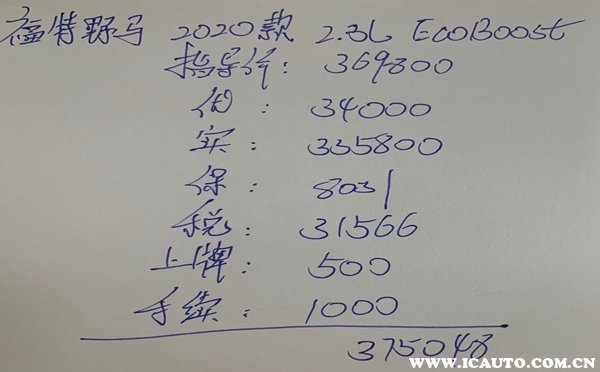 福特野马 2020款 2.3L EcoBoost
指导价: 369800
优: 34000
实: 335800
保: 8031
税: 31566
上牌: 500
手续: 1000
375048
WWW.ICAUTO.COM.CN